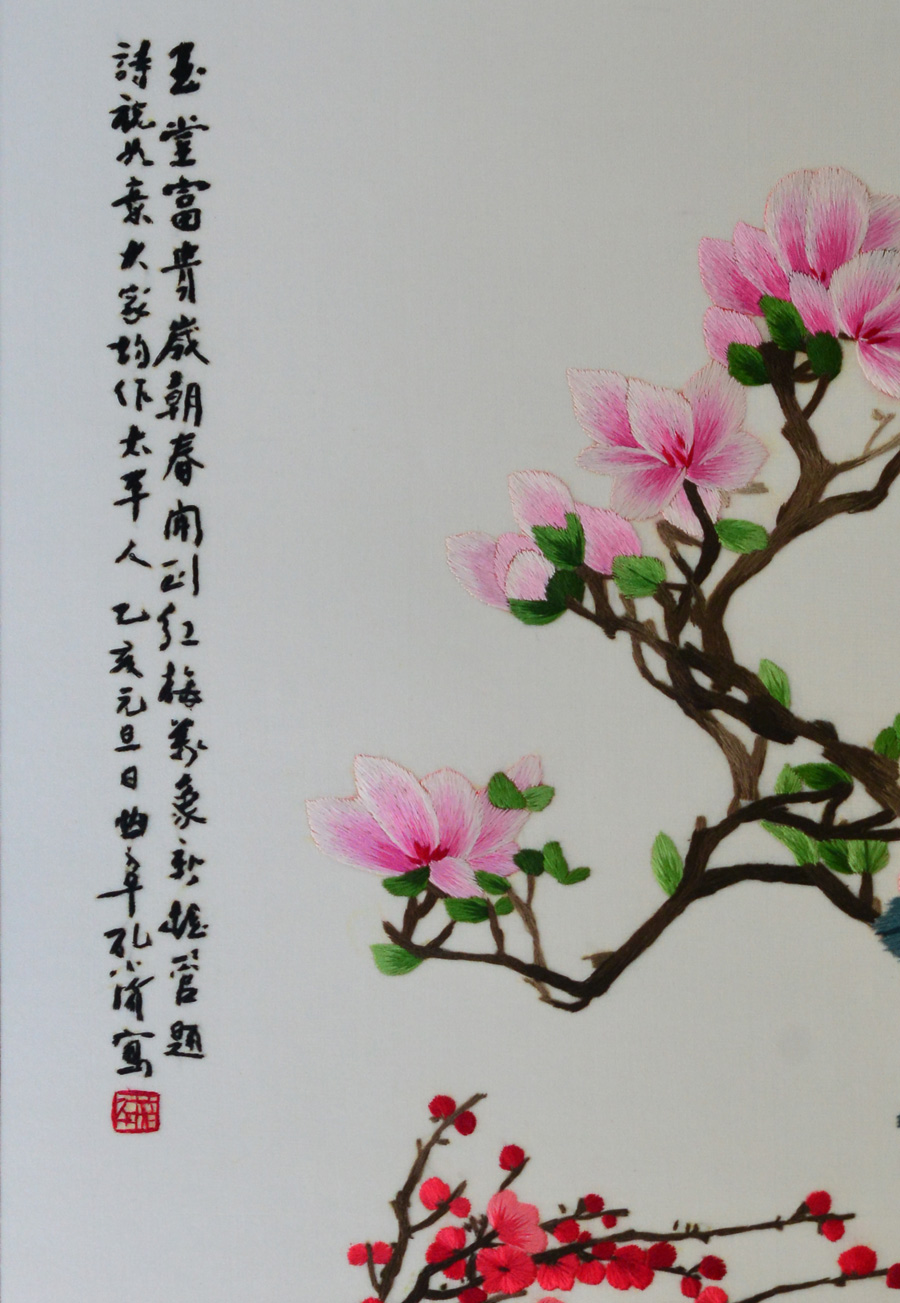 玉堂富貴歲朝春開到紅梅萬象新拈管題
詩祝如意大家均作太平人乙亥元旦日曲阜孔小瑜寫